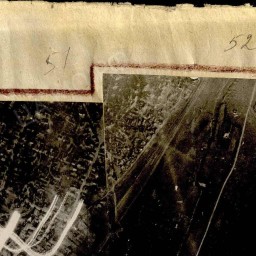 51 52